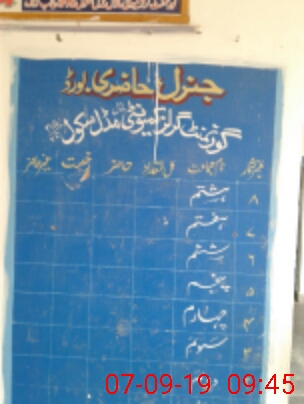 جنرل حاضری بورڈ
گورنمنٹ گرلز کمیونٹی مڈل سکول
نمبر شمار نام جماعت کل تعداد حاضر رخصت غیر حاضر
۸ ہشتم
۷ ہفتم
۶ ششم
۵ پنجم
۴ چہارم
۳ سوم
دوم
07-09-19 09:45